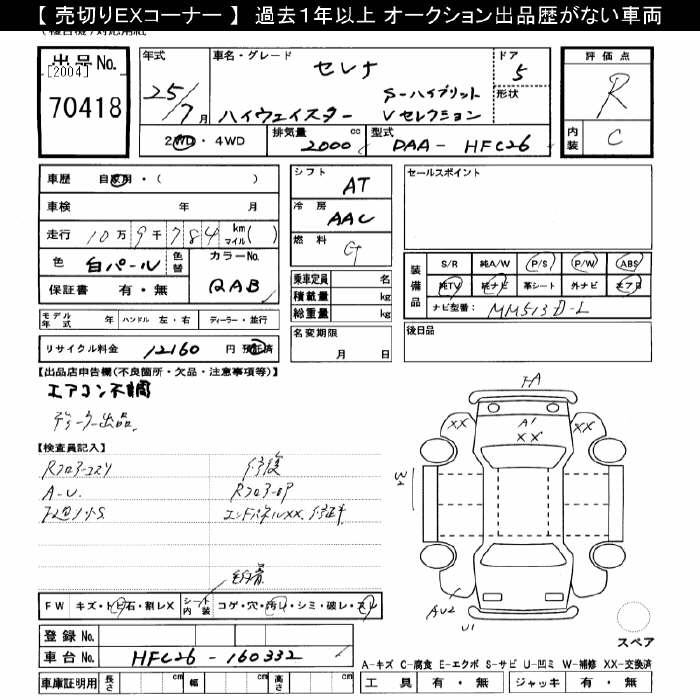 【 売切りEXコーナー 】 過去１年以上 オークション出品歴がない車両
出品 No.
[2004]
70418
年式
25/7月
車名・グレード
セレナ
S-ハイブリット
ハイウェイスター Vセレクション
ドア
5
形状
2WD・4WD
排気量 2000 cc
型式 DAA-HFC26
評価点
R
内装
C
車歴 自家用・( )
車検 年 月
走行 10万9千784 km マイル( )
色 白パール
色替
カラーNo.
QAB
保証書 有・無
モデル年式 年 ハンドル 左・右 ディーラー・並行
リサイクル料金 12160 円 預託済
シフト AT
冷房 AAC
燃料 G
乗車定員 名
積載量 kg
総重量 kg
名変期限
月 日
セールスポイント
装備品
S/R 純A/W P/S P/W ABS
純TV 純ナビ 革シート 外ナビ エアB
ナビ型番: MM513D-L
後日品
【出品店申告欄(不良箇所・欠品・注意事項等)】
エアコン不調
ディーラー出品
【検査員記入】
A-U.
修復
エンドパネルXX.
FA
XX
A1
XX
XX
W2
AU2
U1
スペア
FW キズ・トビ石・割レX
シート内装 コゲ・穴・汚レ・シミ・破レ・スレ
登録 No.
車台 No. HFC26-160332
車庫証明用 長さ cm 幅 cm 高さ cm
A-キズ C-腐食 E-エクボ S-サビ U-凹ミ W-補修 XX-交換済
工具 有・無 ジャッキ 有・無